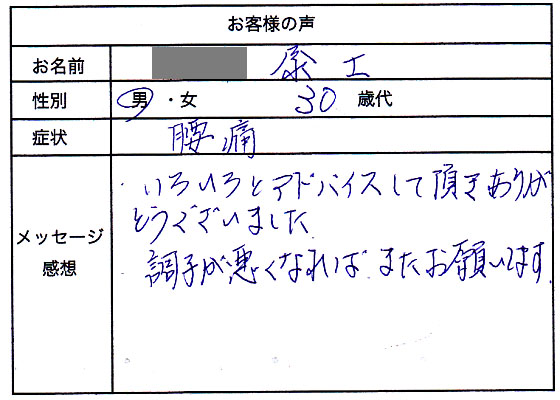 お客様の声
お名前 康工
性別 男・女 30 歳代
症状 腰痛
メッセージ
感想
いろいろとアドバイスして頂きありが
とうございました
調子が悪くなれば またお願いします.